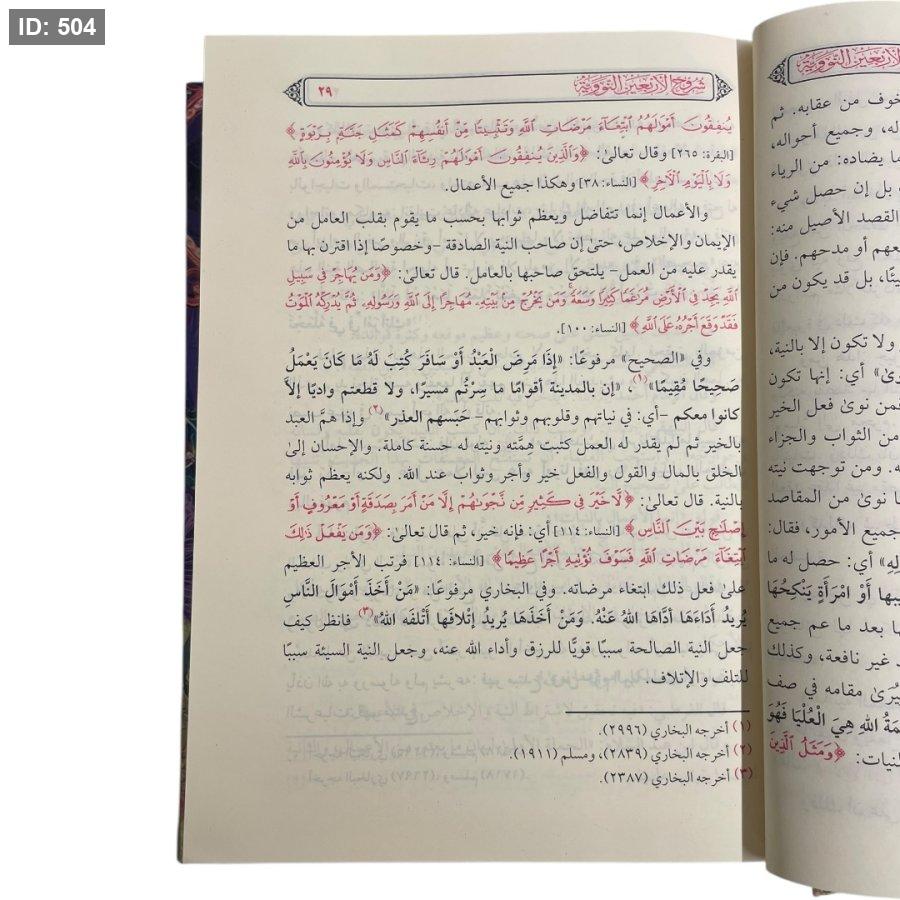 ID: 504
شروح الأربعين النووية
٢٩
يُنفِقُونَ أَمْوَالَهُمُ ابْتِغَاءَ مَرْضَاتِ اللَّهِ وَتَثْبِيتًا مِّنْ أَنفُسِهِمْ كَمَثَلِ جَنَّةٍ بِرَبْوَةٍ ﴾
[البقرة: ٢٦٥] وقال تعالىٰ: ﴿ وَالَّذِينَ يُنفِقُونَ أَمْوَالَهُمْ رِئَاءَ النَّاسِ وَلَا يُؤْمِنُونَ بِاللَّهِ
وَلَا بِالْيَوْمِ الْآخِرِ ﴾ [النساء: ٣٨] وهكذا جميع الأعمال.
والأعمال إنما تتفاضل ويعظم ثوابها بحسب ما يقوم بقلب العامل من
الإيمان والإخلاص، حتىٰ إن صاحب النية الصادقة -وخصوصًا إذا اقترن بها ما
يقدر عليه من العمل- يلتحق صاحبها بالعامل. قال تعالىٰ: ﴿وَمَن يُهَاجِرْ فِي سَبِيلِ
اللَّهِ يَجِدْ فِي الْأَرْضِ مُرَاغَمًا كَثِيرًا وَسَعَةً وَمَن يَخْرُجْ مِن بَيْتِهِ مُهَاجِرًا إِلَى اللَّهِ وَرَسُولِهِ ثُمَّ يُدْرِكْهُ الْمَوْتُ
فَقَدْ وَقَعَ أَجْرُهُ عَلَى اللَّهِ ﴾ [النساء: ١٠٠].
وفي «الصحيح» مرفوعًا: «إِذَا مَرِضَ الْعَبْدُ أَوْ سَافَرَ كُتِبَ لَهُ مَا كَانَ يَعْمَلُ
صَحِيحًا مُقِيمًا»(١)، «إن بالمدينة أقوامًا ما سِرْتُم مسيرًا، ولا قطعتم واديًا إلَّا
كانوا معكم -أي: في نياتهم وقلوبهم وثوابهم- حَبَسهم العذر»(٢) وإذا همَّ العبد
بالخير ثم لم يقدر له العمل كتبت هِمَّته ونيته له حسنة كاملة. والإحسان إلىٰ
الخلق بالمال والقول والفعل خير وأجر وثواب عند الله. ولكنه يعظم ثوابه
بالنية. قال تعالىٰ: ﴿ لَّا خَيْرَ فِي كَثِيرٍ مِّن نَّجْوَاهُمْ إِلَّا مَنْ أَمَرَ بِصَدَقَةٍ أَوْ مَعْرُوفٍ أَوْ
إِصْلَاحٍ بَيْنَ النَّاسِ ﴾ [النساء: ١١٤] أي: فإنه خير، ثم قال تعالىٰ: ﴿وَمَن يَفْعَلْ ذَٰلِكَ
ابْتِغَاءَ مَرْضَاتِ اللَّهِ فَسَوْفَ نُؤْتِيهِ أَجْرًا عَظِيمًا﴾ [النساء: ١١٤] فرتب الأجر العظيم
علىٰ فعل ذلك ابتغاء مرضاته. وفي البخاري مرفوعًا: «مَنْ أَخَذَ أَمْوَالَ النَّاسِ
يُرِيدُ أَدَاءَهَا أدَّاهَا اللهُ عَنْهُ. وَمَنْ أَخَذَهَا يُرِيدُ إِتْلَافَهَا أَتْلَفَه اللهُ»(٣) فانظر كيف
جعل النية الصالحة سببًا قويًّا للرزق وأداء الله عنه، وجعل النية السيئة سببًا
للتلف والإتلاف.
(١) أخرجه البخاري (٢٩٩٦).
(٢) أخرجه البخاري (٢٨٣٩)، ومسلم (١٩١١).
(٣) أخرجه البخاري (٢٣٨٧).
الأربعين النووية
خوف من عقابه. ثم
له، وجميع أحواله،
ما يضاده: من الرياء
بل إن حصل شيء
القصد الأصيل منه:
عهم أو مدحهم. فإن
يئًا، بل قد يكون من
ولا تكون إلا بالنية،
وىٰ» أي: إنها تكون
فمن نوىٰ فعل الخير
من الثواب والجزاء
ه. ومن توجهت نيته
ا نوىٰ من المقاصد
جميع الأمور، فقال:
لِهِ» أي: حصل له ما
يبها أَوْ امْرَأَةٍ يَنْكِحُهَا
ها بعد ما عم جميع
د غير نافعة، وكذلك
يُرَىٰ مقامه في صف
مَةُ اللهِ هِيَ الْعُلْيَا فَهُوَ
لنيات: ﴿وَمَثَلُ الَّذِينَ